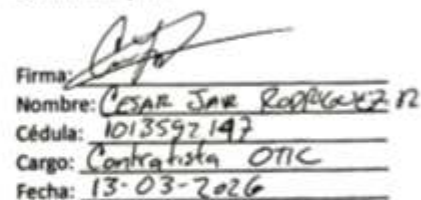 Firma:
Nombre: CESAR JAIR RODRIGUEZ R
Cédula: 1013592147
Cargo: Contratista OTIC
Fecha: 13-03-2026